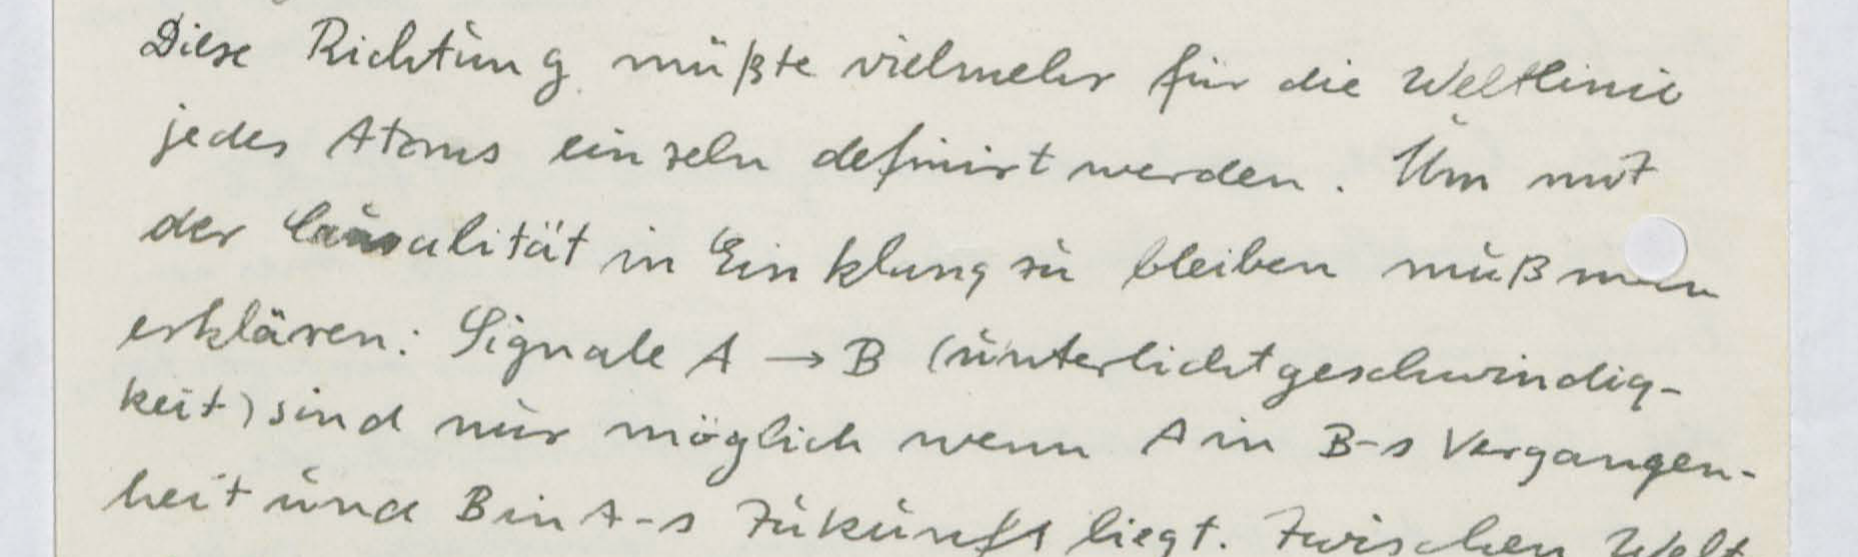 Diese Richtung müßte vielmehr für die Weltlinie
jedes Atoms einzeln definirt werden. Um mit
der Causalität in Einklang zu bleiben muß man
erklären: Signale A → B (unterlichtgeschwindig-
keit) sind nur möglich wenn A in B-s Vergangen-
heit und B in A-s Zukunft liegt. Zwischen Welt